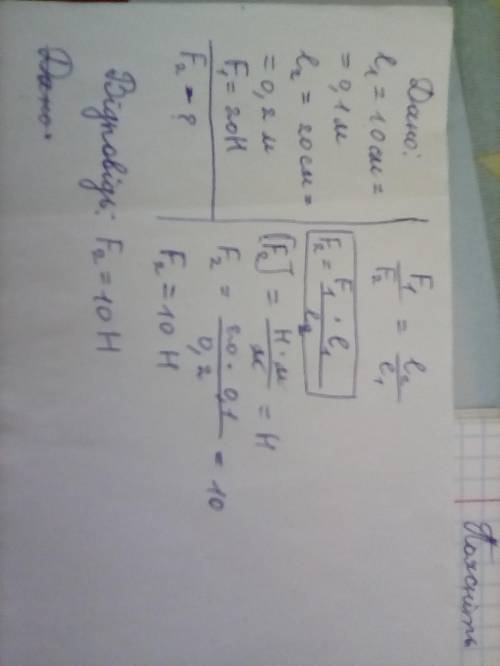 Дано:
l₁ = 10 см =
= 0,1 м
l₂ = 20 см =
= 0,2 м
F₁ = 20 Н
F₂ - ?
F₁/F₂ = l₂/l₁
F₂ = F₁ · l₁ / l₂
[F₂] = Н · м / м = Н
F₂ = 20 · 0,1 / 0,2 = 10
F₂ = 10 Н
Відповідь: F₂ = 10 Н
Дано:
Поясніть